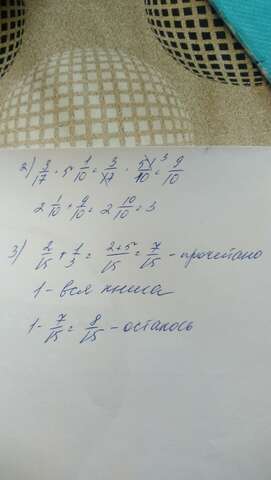 2) 3/17 · 5 1/10 = 3/17 · 51/10 ³ = 9/10
2 1/10 + 9/10 = 2 10/10 = 3
3) 2/15 + 1/3 = 2+5/15 = 7/15 - прочитано
1 - вся книга
1 - 7/15 = 8/15 - осталось